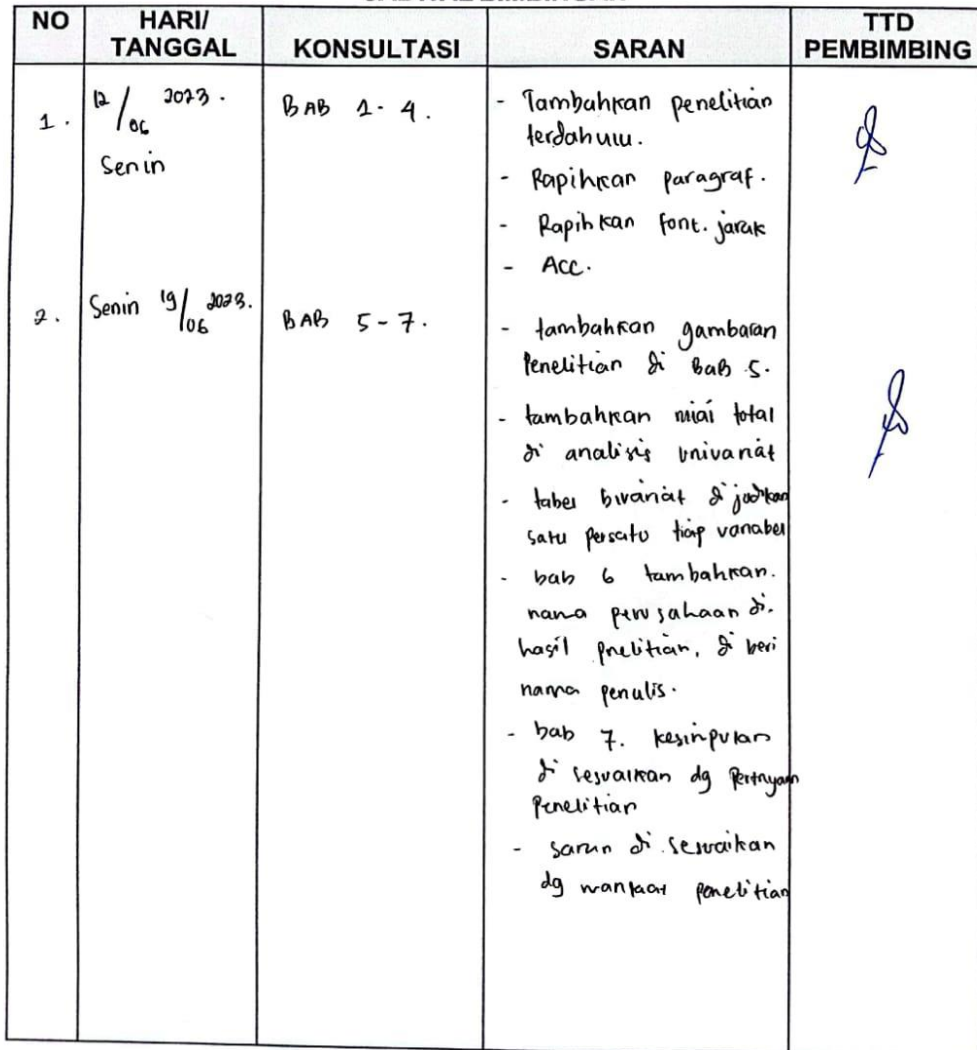 NO HARI/ TANGGAL KONSULTASI SARAN TTD PEMBIMBING
1. 12/06 2023. Senin BAB 1-4.
- Tambahkan penelitian
terdahulu.
- Rapihkan paragraf.
- Rapihkan font. jarak
- Acc.
2. Senin 19/06 2023. BAB 5-7.
- tambahkan gambaran
Penelitian di BAB 5.
- tambahkan nilai total
di analisis univariat
- tabel bivariat dijadikan
satu persatu tiap variabel
- bab 6 tambahkan.
nama perusahaan di.
hasil pnelitian, di beri
nama penulis.
- bab 7. kesinpulan
di sesuaikan dg Pertnyaan
Penelitian
- saran di sesuaikan
dg manfaat penelitian